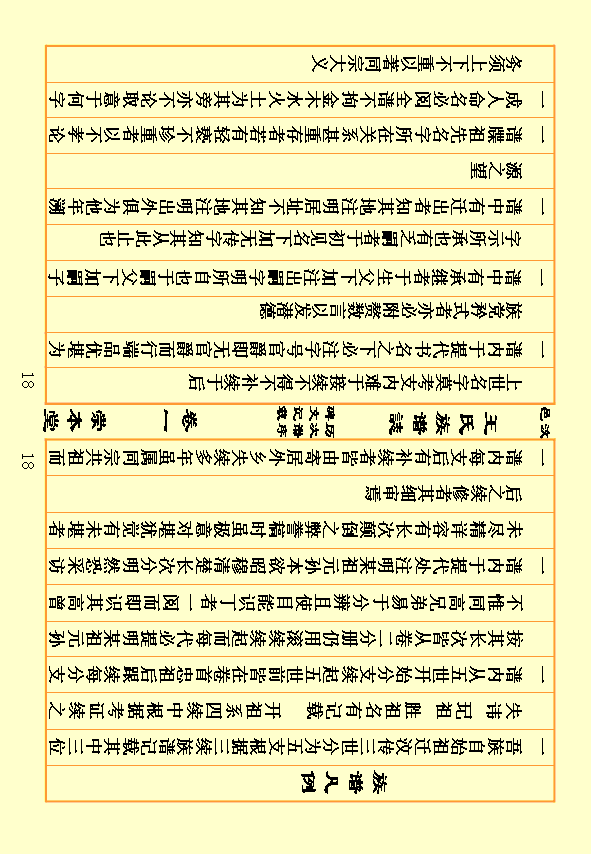 族谱凡例
一 吾族自始祖迁汝传三世分为五支根据三续族谱记载其中三位
失讳 玘祖 胜祖名有记载 开祖系四续中根据考证续之
一 谱内从五世开始分支续起五世前皆在卷首忠祖后跟续每分支
按其长次皆从卷一分册仍用滚续续起而每代必提明某祖元孙
不惟同高兄弟易于分辨且使目能识丁者一阅而即识其高曾
一 谱内于提代处注明某祖元孙本欲昭穆清楚长次分明然恐采访
未尽精详容有长次颠倒之弊誊稿时虽极意对堪犹觉有未堪者
后之续修者其细审焉
一 谱内每支后有补续者皆由寄居外乡失续多年虽属同宗共祖而
18
汝邑
王氏族谱誌
历次谱序
碑文记载
卷一
崇本堂
18
上世名字莫考支内难于接续不得不补续于后
一 谱内于提代书名之下必注字号官爵即无官爵而行端品优堪为
族党矜式者亦必附赘数言以发潜德
一 谱中有承继者于生父下加注出嗣字明所自也于嗣父下加嗣子
字示所承也有乏嗣者于初见名下加无传字知其从此止也
一 谱中有迁出者知其地注明居址不知其地注明出外俱为他年溯
源之望
一 谱牒祖先名字所在关系甚重存者若有轻亵不珍重者以不孝论
一 成人命名必阅全谱不拘金木水火土为其旁亦不论取意于何字
务须上下不重以著同宗大义